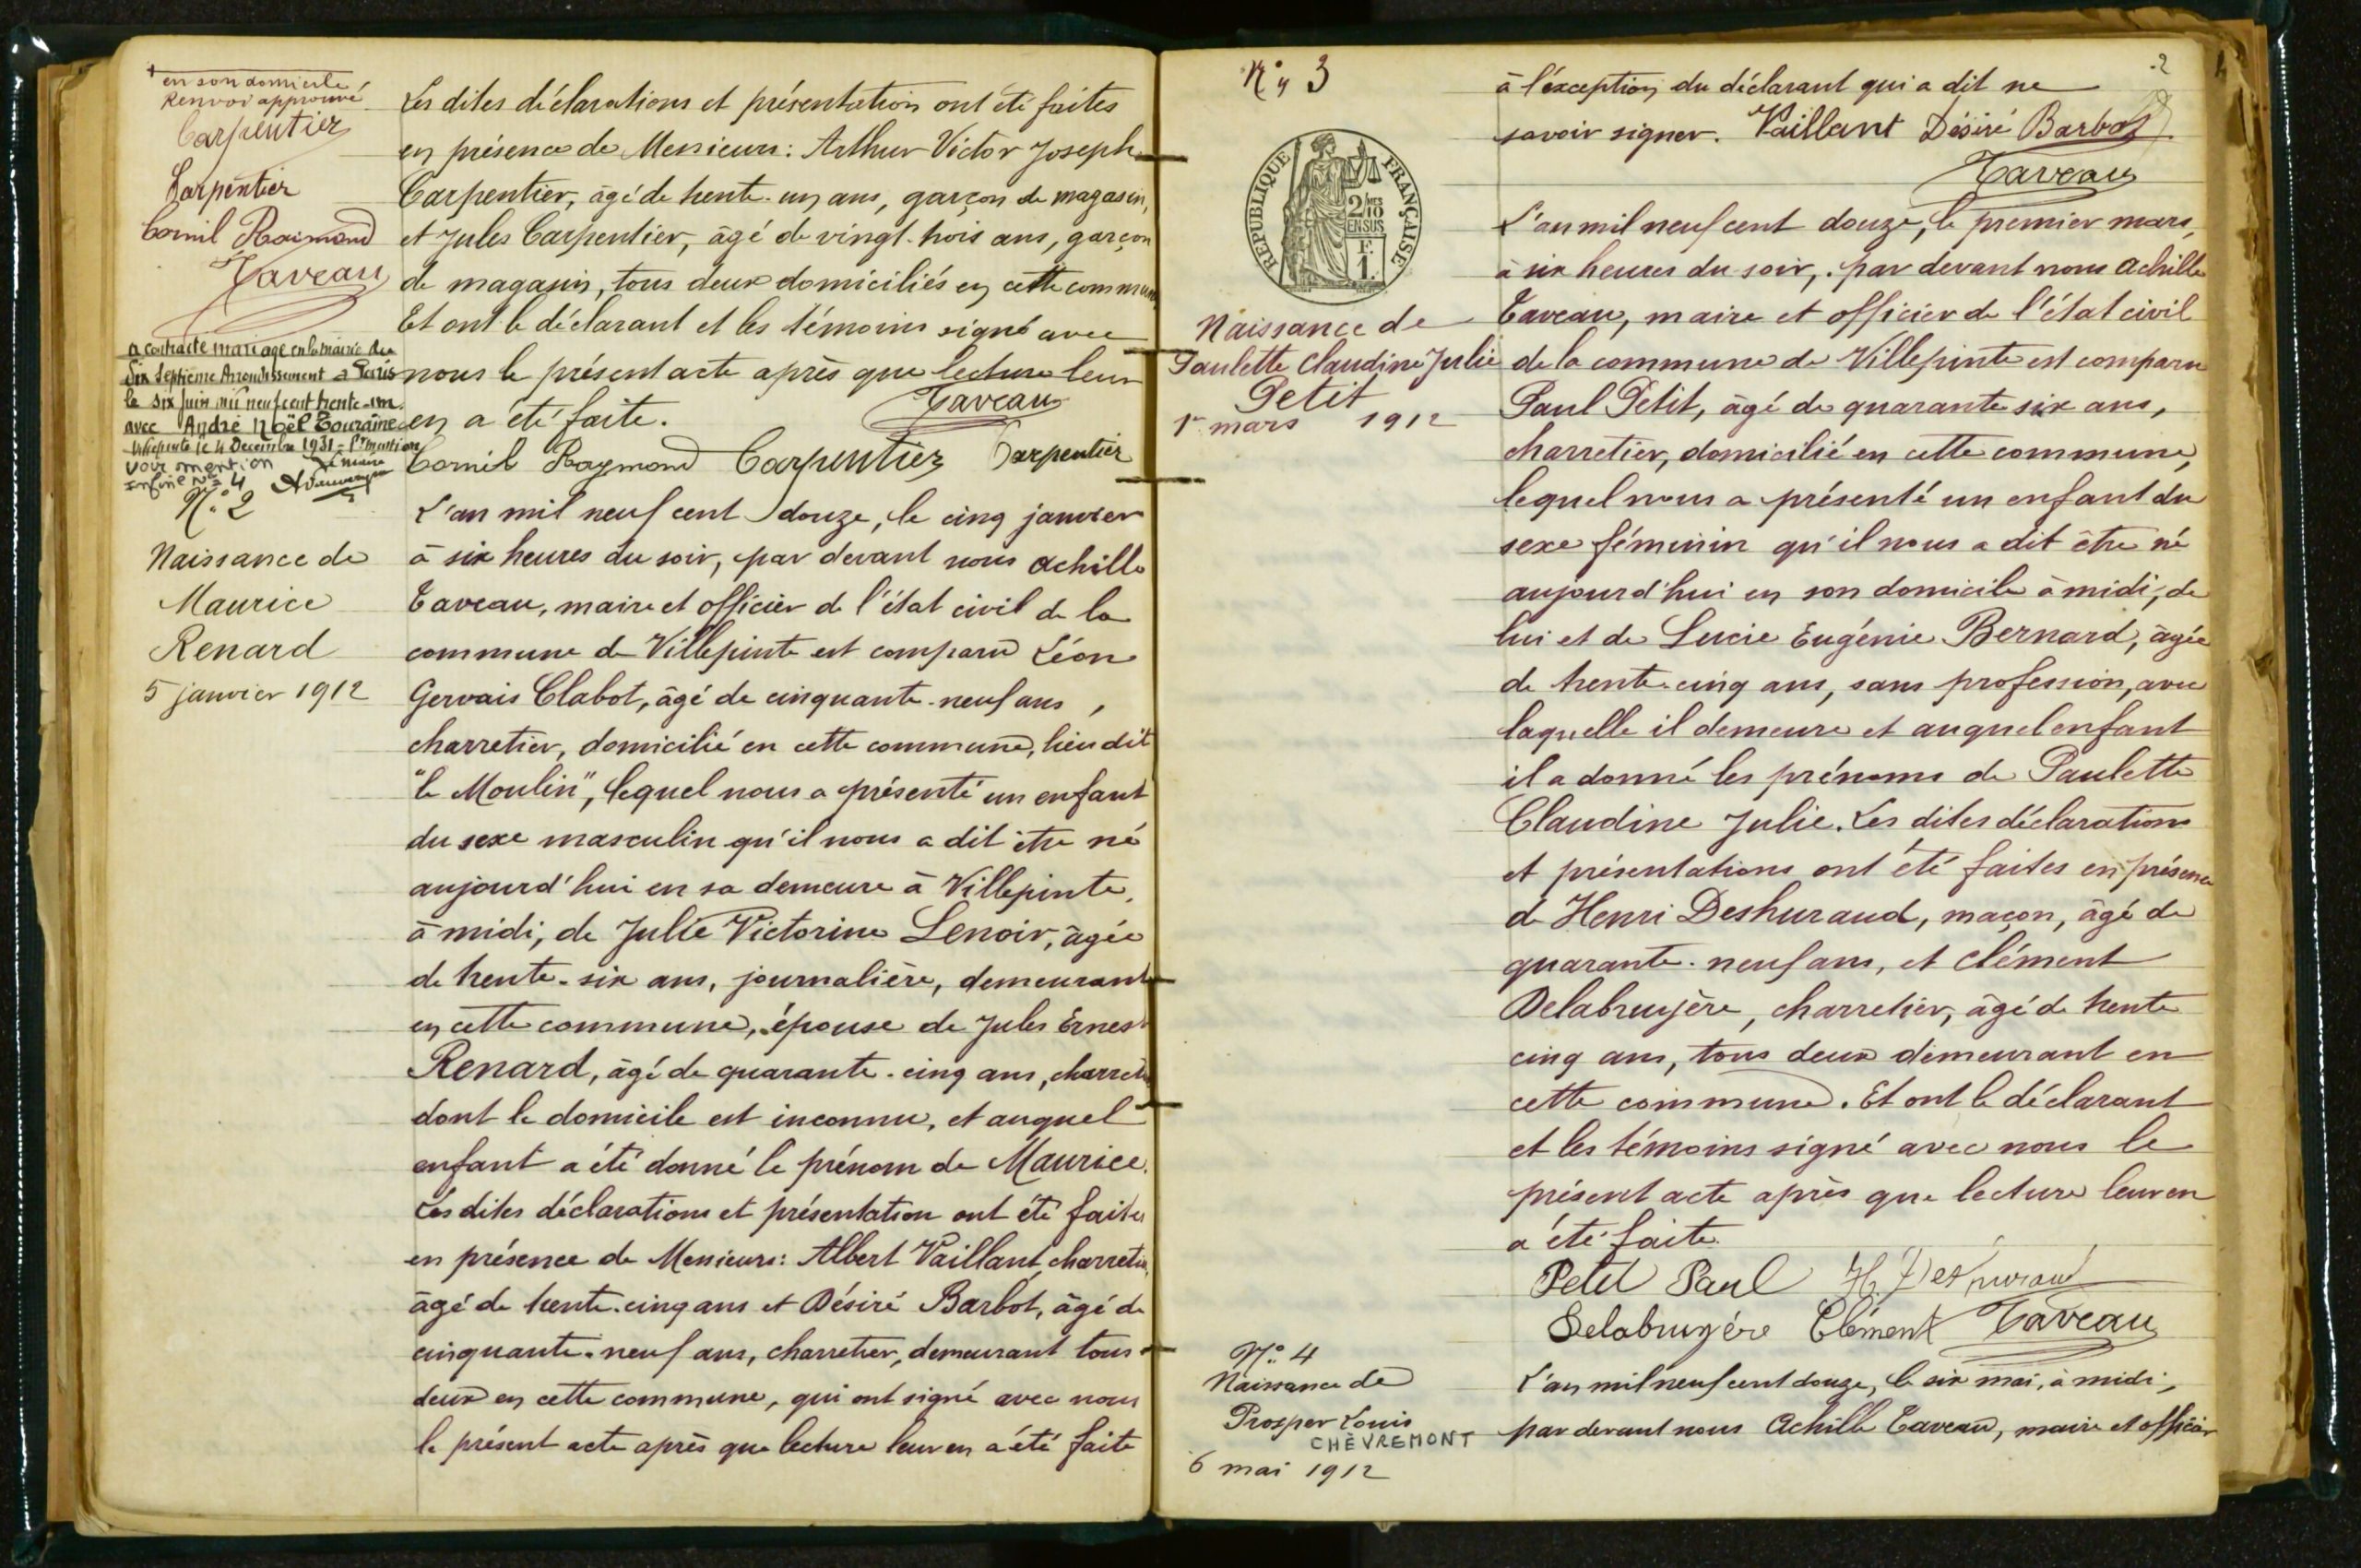 en son domicile
Renvoi approuvé
Carpentier
Carpentier
Cornil Raimond
Taveau
a contracté mariage en la mairie du
Dix Septième Arrondissement à Paris
le six Juin mil neuf cent trente-un
avec André Noël Touraine
Villepinte le 4 Décembre 1931 - Pr mention
Le maire
Voir mention
infine No 4
Les dites déclarations et présentation ont été faites
en présence de Messieurs: Arthur Victor Joseph
Carpentier, âgé de trente-un ans, garçon de magasin,
et Jules Carpentier, âgé de vingt-trois ans, garçon
de magasin, tous deux domiciliés en cette commune
Et ont le déclarant et les témoins signé avec
nous le présent acte après que lecture leur
en a été faite. Taveau
Cornil Raymond Carpentier Carpentier
No. 2
Naissance de
Maurice
Renard
5 janvier 1912
L'an mil neuf cent douze, le cinq janvier
à six heures du soir, par devant nous Achille
Taveau, maire et officier de l'état civil de la
commune de Villepinte est comparu Léon
Gervais Clabot, âgé de cinquante-neuf ans,
charretier, domicilié en cette commune, lieu dit
"le Moulin", lequel nous a présenté un enfant
du sexe masculin qu'il nous a dit être né
aujourd'hui en sa demeure à Villepinte,
à midi, de Julie Victorine Lenoir, âgée
de trente-six ans, journalière, demeurant
en cette commune, épouse de Jules Ernest
Renard, âgé de quarante-cinq ans, charretier
dont le domicile est inconnu, et auquel
enfant a été donné le prénom de Maurice.
Les dites déclarations et présentation ont été faites
en présence de Messieurs: Albert Vaillant, charretier,
âgé de trente-cinq ans et Désiré Barbot, âgé de
cinquante-neuf ans, charretier, demeurant tous
deux en cette commune, qui ont signé avec nous
le présent acte après que lecture leur en a été faite
2
à l'exception du déclarant qui a dit ne
savoir signer. Vaillant Désiré Barbot
Taveau
No 3
REPUBLIQUE FRANÇAISE
2/10
EN SUS
F.
1.
Naissance de
Paulette Claudine Julie
Petit
1er mars 1912
L'an mil neuf cent douze, le premier mars,
à six heures du soir, par devant nous Achille
Taveau, maire et officier de l'état civil
de la commune de Villepinte est comparu
Paul Petit, âgé de quarante six ans,
charretier, domicilié en cette commune,
lequel nous a présenté un enfant du
sexe féminin qu'il nous a dit être né
aujourd'hui en son domicile à midi, de
lui et de Lucie Eugénie Bernard, âgée
de trente-cinq ans, sans profession, avec
laquelle il demeure et auquel enfant
il a donné les prénoms de Paulette
Claudine Julie. Les dites déclarations
et présentations ont été faites en présence
de Henri Deshuraud, maçon, âgé de
quarante-neuf ans, et Clément
Delabruyère, charretier, âgé de trente
cinq ans, tous deux demeurant en
cette commune. Et ont le déclarant
et les témoins signé avec nous le
présent acte après que lecture leur en
a été faite.
Petit Paul H. Deshuraud
Delabruyère Clément Taveau
No. 4
Naissance de
Prosper Louis
CHÈVREMONT
6 mai 1912
L'an mil neuf cent douze, le six mai, à midi,
par devant nous Achille Taveau, maire et officier